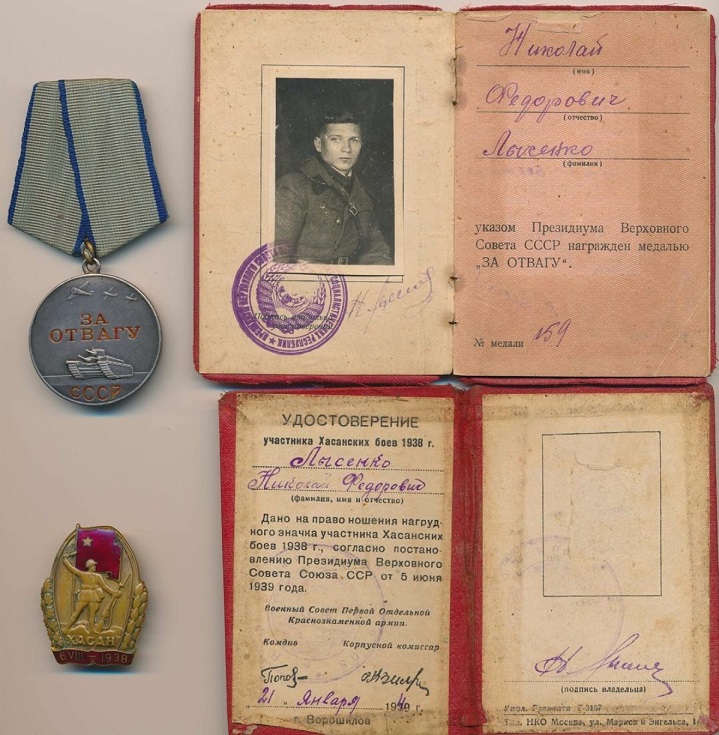 ЗА
ОТВАГУ
СССР
Николай
(имя)
Федорович
(отчество)
Лысенко
(фамилия)
указом Президиума Верховного
Совета СССР награжден медалью
„ЗА ОТВАГУ“.
№ медали 159
Подпись владельца
удостоверения
УДОСТОВЕРЕНИЕ
участника Хасанских боев 1938 г.
Лысенко
Николай Федорович
(фамилия, имя и отчество)
Дано на право ношения нагруд-
ного значка участника Хасанских
боев 1938 г., согласно постано-
влению Президиума Верховного
Совета Союза ССР от 5 июня
1939 года.
Военный Совет Первой Отдельной
Краснознаменной армии.
Комдив Корпусной комиссар
21 Января 1940 г.
г. Ворошилов
(подпись владельца)
Упол. Главлита Г-3157
Тип. НКО Москва, ул. Маркса и Энгельса,
ХАСАН
6 VIII - 1938